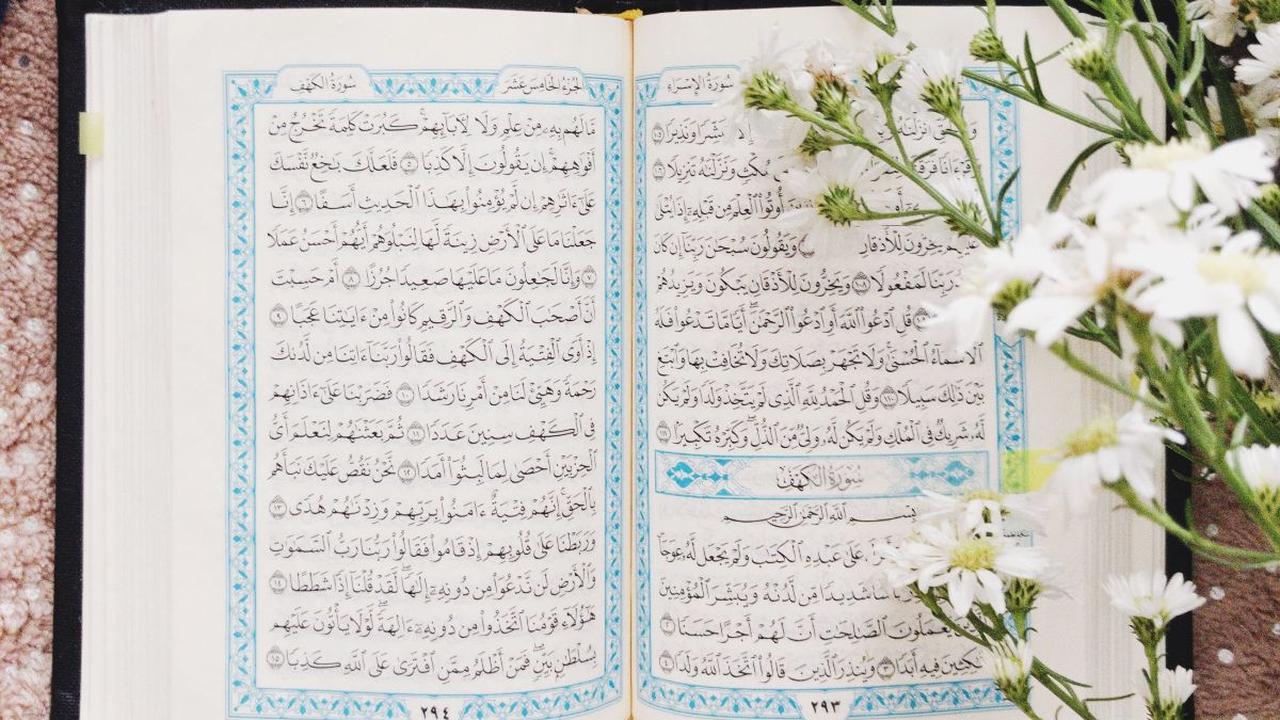 سُورَةُ الإِسْرَاءِ
أَنزَلْنَٰهُ إِلَّا مُبَشِّرًا وَنَذِيرًا ١٠٥
وَقُرْءَانًا فَرَقْنَٰهُ مُكْثٍ وَنَزَّلْنَٰهُ تَنزِيلًا ١٠٦
أُوتُوا۟ ٱلْعِلْمَ مِن قَبْلِهِۦٓ إِذَا يُتْلَىٰ
عَلَيْهِمْ يَخِرُّونَ لِلْأَذْقَانِ وَيَقُولُونَ سُبْحَٰنَ رَبِّنَآ إِن كَانَ
وَعْدُ رَبِّنَا لَمَفْعُولًا ١٠٨ وَيَخِرُّونَ لِلْأَذْقَانِ يَبْكُونَ وَيَزِيدُهُمْ
قُلِ ٱدْعُوا۟ ٱللَّهَ أَوِ ٱدْعُوا۟ ٱلرَّحْمَٰنَ ۖ أَيًّا مَّا تَدْعُوا۟ فَلَهُ
ٱلْأَسْمَآءُ ٱلْحُسْنَىٰ ۚ وَلَا تَجْهَرْ بِصَلَاتِكَ وَلَا تُخَافِتْ بِهَا وَٱبْتَغِ
بَيْنَ ذَٰلِكَ سَبِيلًا ١١٠ وَقُلِ ٱلْحَمْدُ لِلَّهِ ٱلَّذِى لَمْ يَتَّخِذْ وَلَدًا وَلَمْ يَكُن
لَّهُۥ شَرِيكٌ فِى ٱلْمُلْكِ وَلَمْ يَكُن لَّهُۥ وَلِىٌّ مِّنَ ٱلذُّلِّ ۖ وَكَبِّرْهُ تَكْبِيرًۢا ١١١
سُورَةُ الكَهْفِ
بِسْمِ ٱللَّهِ ٱلرَّحْمَٰنِ ٱلرَّحِيمِ
عَلَىٰ عَبْدِهِ ٱلْكِتَٰبَ وَلَمْ يَجْعَل لَّهُۥ عِوَجَا
شَدِيدًا مِّن لَّدُنْهُ وَيُبَشِّرَ ٱلْمُؤْمِنِينَ
يَعْمَلُونَ ٱلصَّٰلِحَٰتِ أَنَّ لَهُمْ أَجْرًا حَسَنًا ٢
مَّٰكِثِينَ فِيهِ أَبَدًا ٣ وَيُنذِرَ ٱلَّذِينَ قَالُوا۟ ٱتَّخَذَ ٱللَّهُ وَلَدًا ٤
٢٩٣
الجُزْءُ الخَامِسَ عَشَرَ
سُورَةُ الكَهْفِ
مَّا لَهُم بِهِۦ مِنْ عِلْمٍ وَلَا لِءَابَآئِهِمْ ۚ كَبُرَتْ كَلِمَةً تَخْرُجُ مِنْ
أَفْوَٰهِهِمْ ۚ إِن يَقُولُونَ إِلَّا كَذِبًا ٥ فَلَعَلَّكَ بَٰخِعٌ نَّفْسَكَ
عَلَىٰٓ ءَاثَٰرِهِمْ إِن لَّمْ يُؤْمِنُوا۟ بِهَٰذَا ٱلْحَدِيثِ أَسَفًا ٦ إِنَّا
جَعَلْنَا مَا عَلَى ٱلْأَرْضِ زِينَةً لَّهَا لِنَبْلُوَهُمْ أَيُّهُمْ أَحْسَنُ عَمَلًا
٧ وَإِنَّا لَجَٰعِلُونَ مَا عَلَيْهَا صَعِيدًا جُرُزًا ٨ أَمْ حَسِبْتَ
أَنَّ أَصْحَٰبَ ٱلْكَهْفِ وَٱلرَّقِيمِ كَانُوا۟ مِنْ ءَايَٰتِنَا عَجَبًا ٩
إِذْ أَوَى ٱلْفِتْيَةُ إِلَى ٱلْكَهْفِ فَقَالُوا۟ رَبَّنَآ ءَاتِنَا مِن لَّدُنكَ
رَحْمَةً وَهَيِّئْ لَنَا مِنْ أَمْرِنَا رَشَدًا ١٠ فَضَرَبْنَا عَلَىٰٓ ءَاذَانِهِمْ
فِى ٱلْكَهْفِ سِنِينَ عَدَدًا ١١ ثُمَّ بَعَثْنَٰهُمْ لِنَعْلَمَ أَىُّ
ٱلْحِزْبَيْنِ أَحْصَىٰ لِمَا لَبِثُوٓا۟ أَمَدًا ١٢ نَّحْنُ نَقُصُّ عَلَيْكَ نَبَأَهُم
بِٱلْحَقِّ ۚ إِنَّهُمْ فِتْيَةٌ ءَامَنُوا۟ بِرَبِّهِمْ وَزِدْنَٰهُمْ هُدًى ١٣
وَرَبَطْنَا عَلَىٰ قُلُوبِهِمْ إِذْ قَامُوا۟ فَقَالُوا۟ رَبُّنَا رَبُّ ٱلسَّمَٰوَٰتِ
وَٱلْأَرْضِ لَن نَّدْعُوَا۟ مِن دُونِهِۦٓ إِلَٰهًا ۖ لَّقَدْ قُلْنَآ إِذًا شَطَطًا ١٤
هَٰٓؤُلَآءِ قَوْمُنَا ٱتَّخَذُوا۟ مِن دُونِهِۦٓ ءَالِهَةً ۖ لَّوْلَا يَأْتُونَ عَلَيْهِم
بِسُلْطَٰنٍۭ بَيِّنٍ ۖ فَمَنْ أَظْلَمُ مِمَّنِ ٱفْتَرَىٰ عَلَى ٱللَّهِ كَذِبًا ١٥
٢٩٤